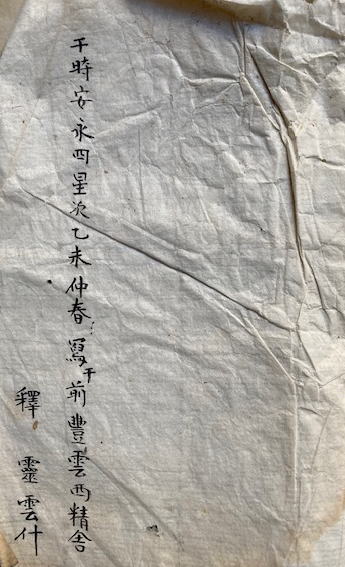 于時安永四星次乙未仲春寫于前豐雲西精舍
釋靈雲什